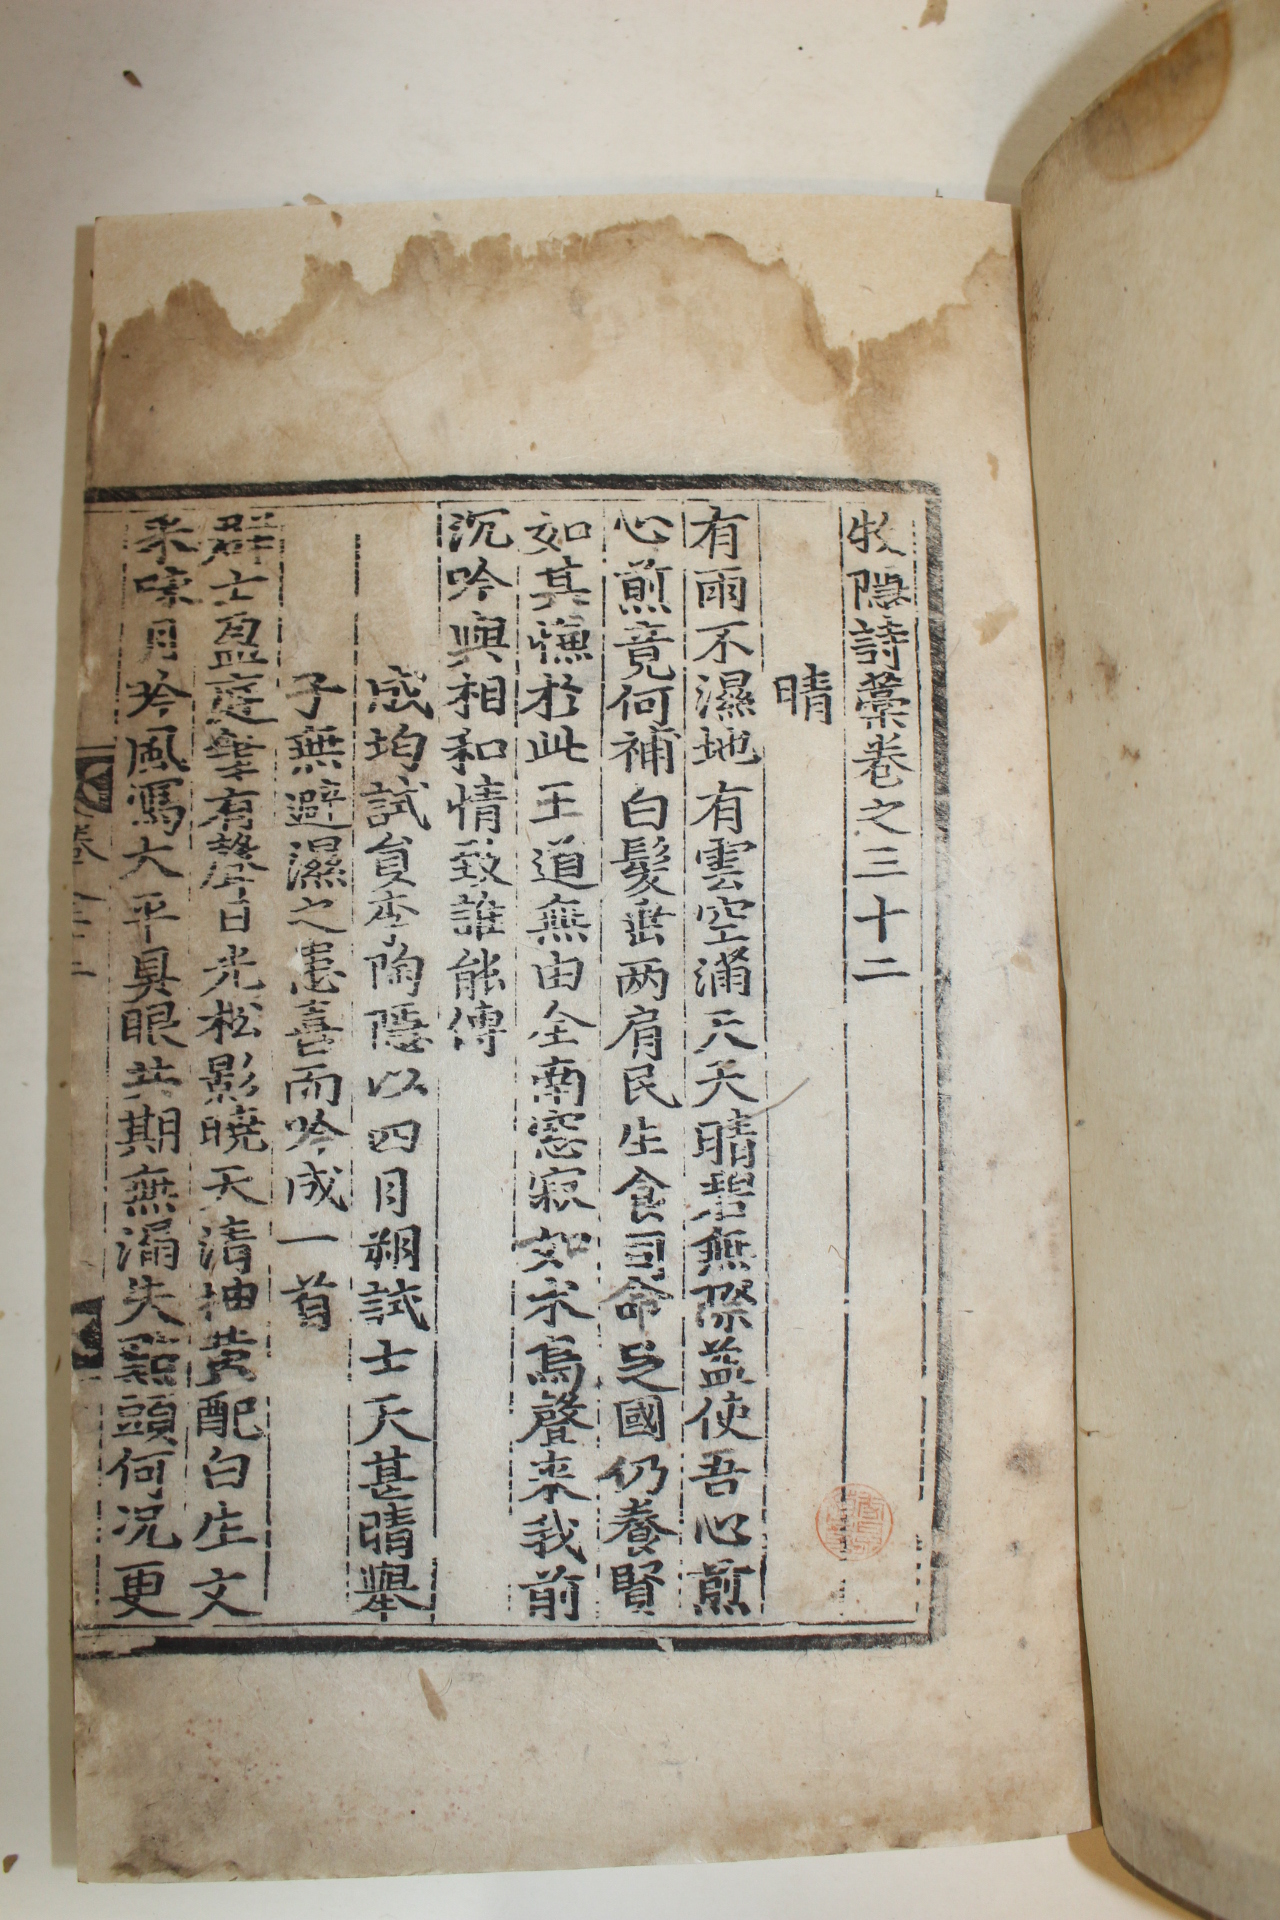 牧隱詩藁卷之三十二
晴
有雨不濕地有雲空滿天天晴碧無際益使吾心煎
心煎竟何補白髮垂两肩民生食司命足國仍養賢
如其憮於此王道無由全南窓寂如水鳥聲來我前
沉吟與相和情致誰能傳
成均試負李陶隱以四月朔試士天甚晴舉
子無避濕之患喜而吟成一首
群士盈庭筆有聲日光松影曉天淸抽黃配白生文
釆嗉月吟風寫大平具眼共期無漏失點頭何况更
卷三十二